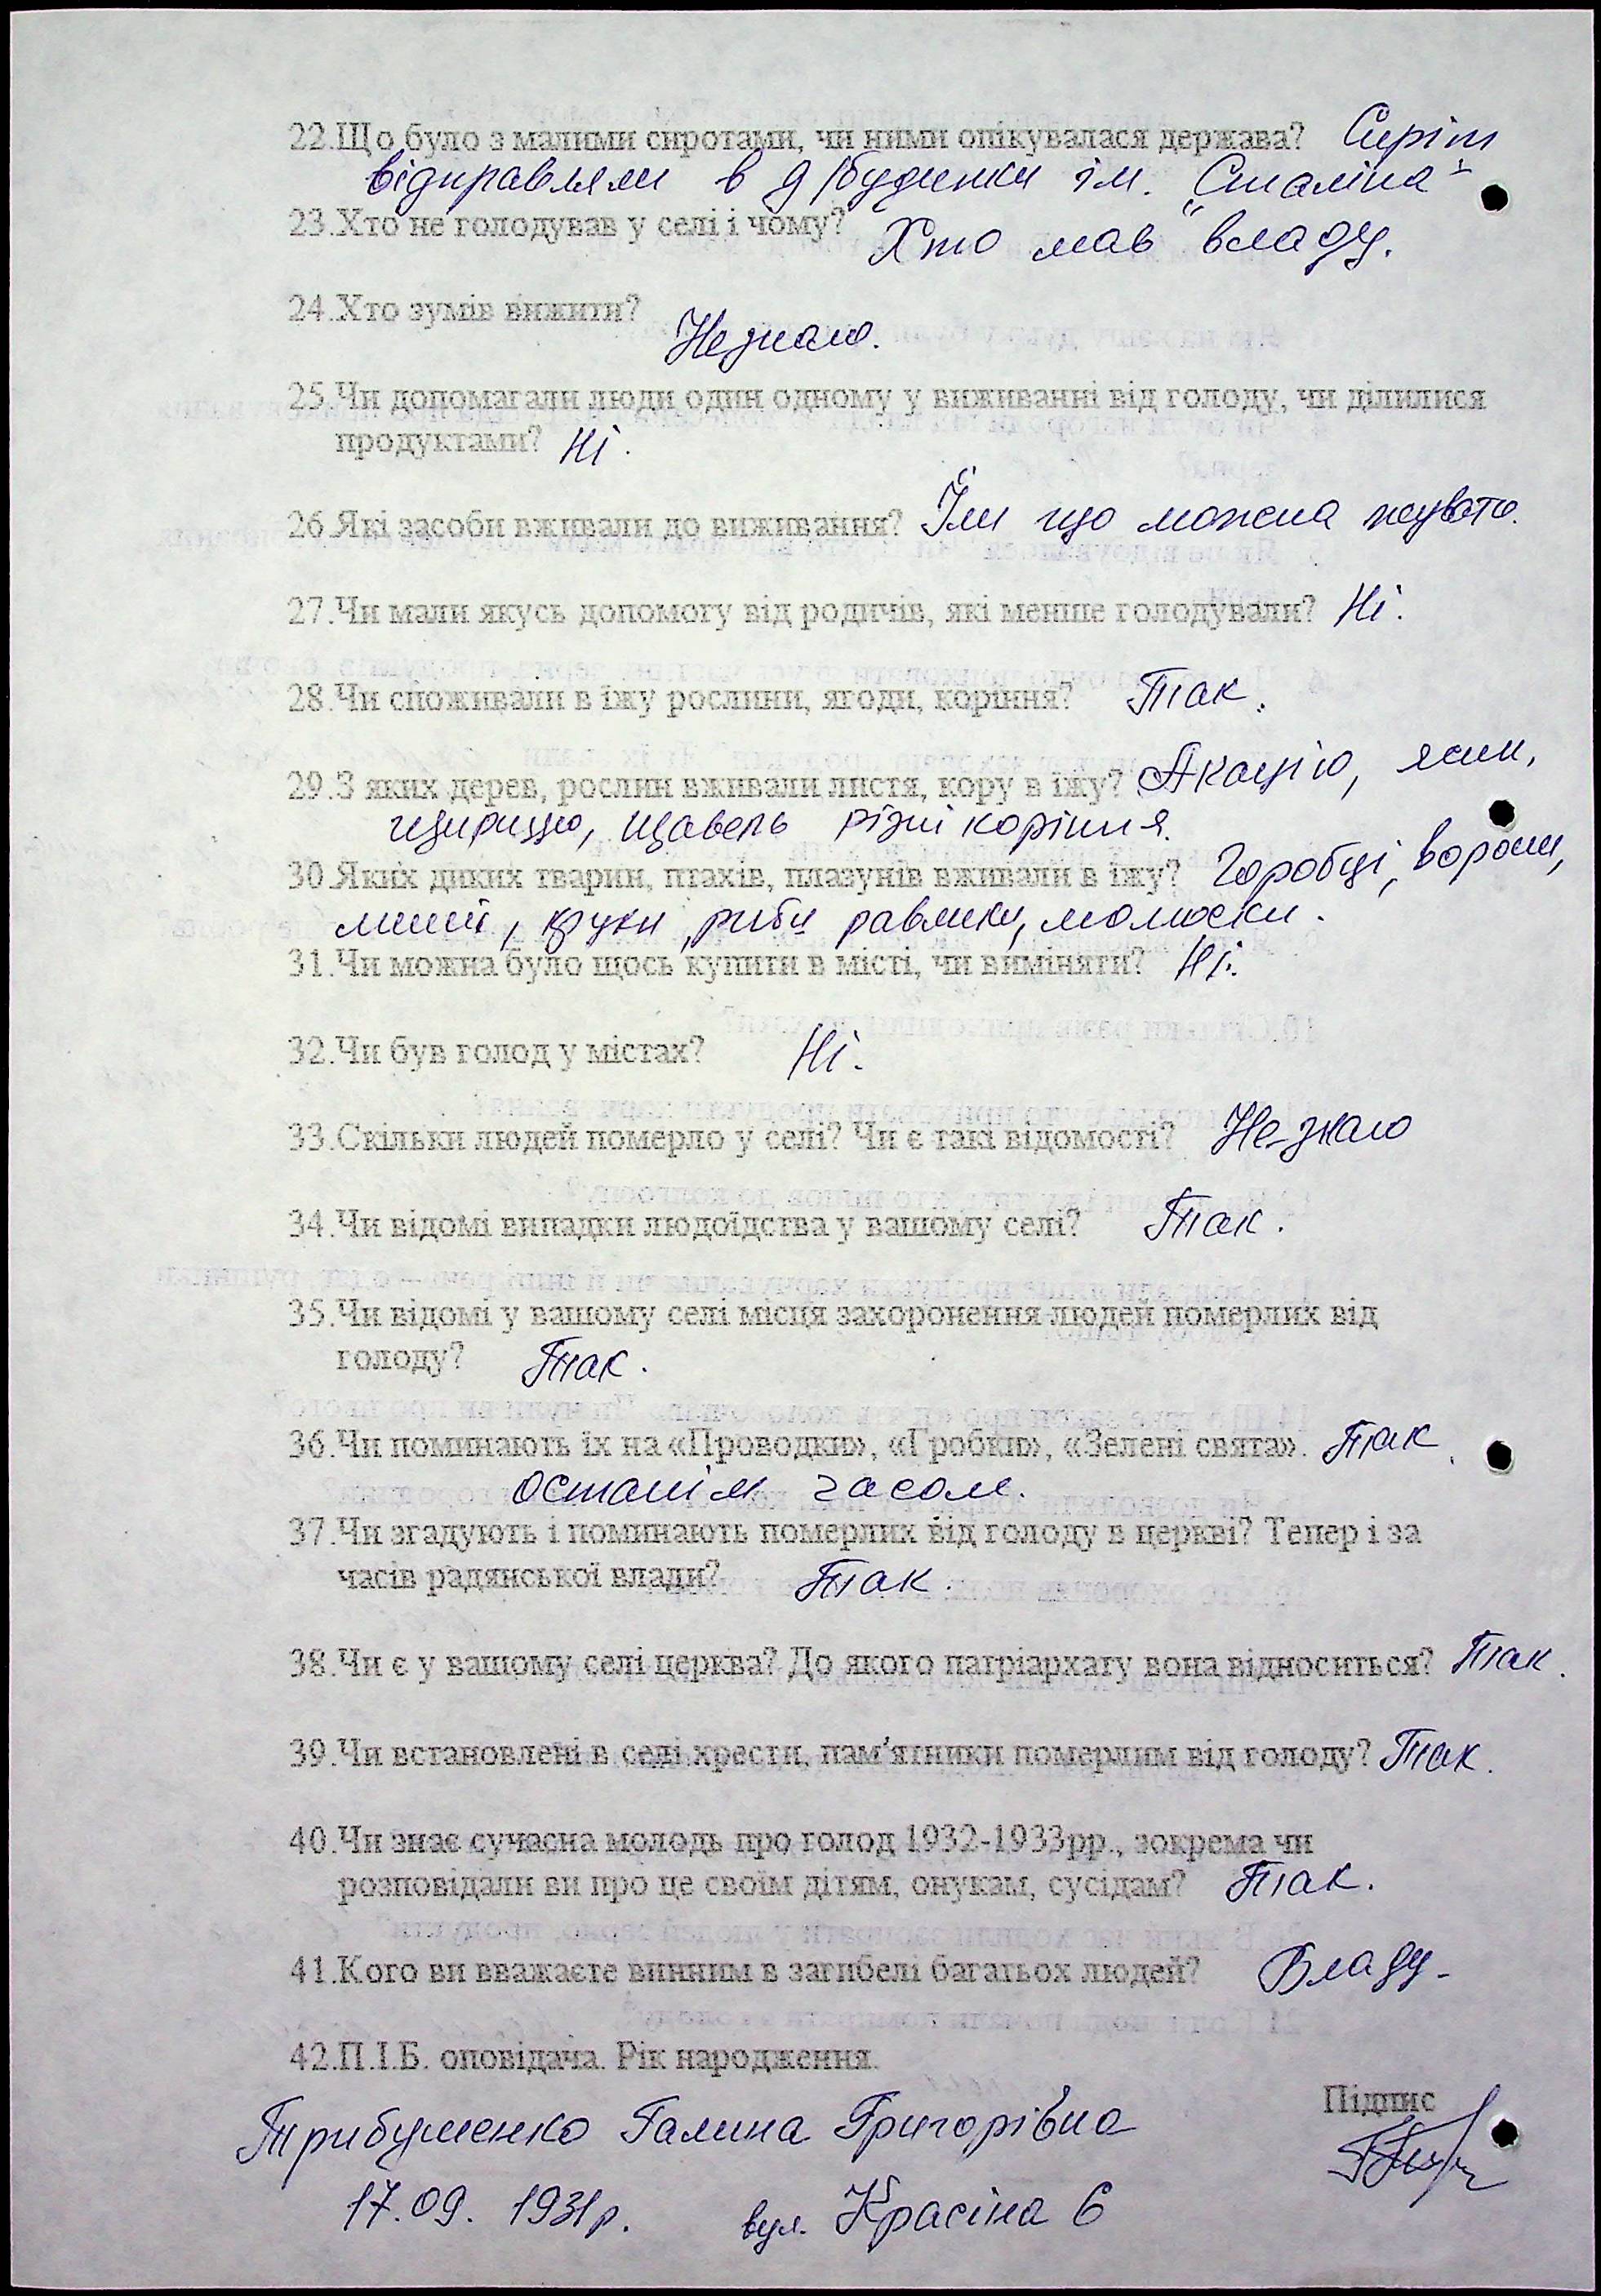 22.Що було з малими сиротами, чи ними опікувалася держава? Сиріт
відправляли в д/будинки ім. "Сталіна"
23.Хто не голодував у селі і чому? Хто мав владу.
24.Хто зумів вижити? Незнаю.
25.Чи допомагали люди один одному у виживанні від голоду, чи ділилися
продуктами? Ні.
26.Які засоби вживали до виживання? Їли що можна жувати.
27.Чи мали якусь допомогу від родичів, які менше голодували? Ні.
28.Чи споживали в їжу рослини, ягоди, коріння? Так.
29.З яких дерев, рослин вживали листя, кору в їжу? Акацію, ясин,
щирицю, щавель різні коріння.
30.Яких диких тварин, птахів, плазунів вживали в їжу? Горобці, ворони,
миші, круки, риби равлики, молюски.
31.Чи можна було щось купити в місті, чи виміняти? Ні.
32.Чи був голод у містах? Ні.
33.Скільки людей померло у селі? Чи є такі відомості? Не знаю
34.Чи відомі випадки людоїдства у вашому селі? Так.
35.Чи відомі у вашому селі місця захоронення людей померлих від
голоду? Так.
36.Чи поминають їх на «Проводки», «Гробки», «Зелені свята». Так.
останім часом.
37.Чи згадують і поминають померлих від голоду в церкві? Тепер і за
часів радянської влади? Так.
38.Чи є у вашому селі церква? До якого патріархату вона відноситься? Так.
39.Чи встановлені в селі хрести, пам'ятники померлим від голоду? Так.
40.Чи знає сучасна молодь про голод 1932-1933рр., зокрема чи
розповідали ви про це своїм дітям, онукам, сусідам? Так.
41.Кого ви вважаєте винним в загибелі багатьох людей? Владу.
42.П.І.Б. оповідача. Рік народження.
Підпис
Трибуменко Галина Григорівна
17.09. 1931р. вул. Красіна 6